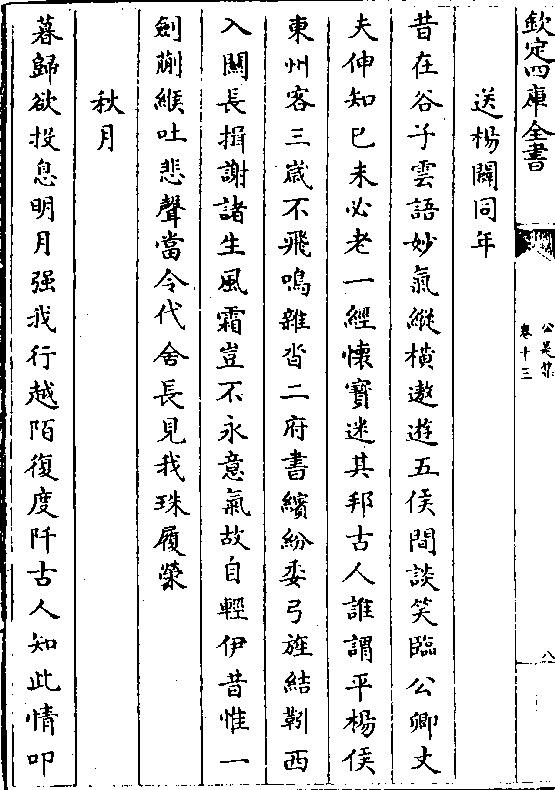 欽定四庫全書
公是集
卷十三
八
送楊闢同年
昔在谷子雲語妙氣縱橫遨遊五侯間談笑臨公卿丈
夫伸知已未必老一經懷寶迷其邦古人誰謂平楊侯
東州客三嵗不飛鳴雜沓二府書繽紛委弓旌結靷西
入關長揖謝諸生風霜豈不永意氣故自輕伊昔惟一
劍蒯緱吐悲聲當令代舍長見我珠履榮
秋月
暮歸欲投息明月强我行越陌復度阡古人知此情叩